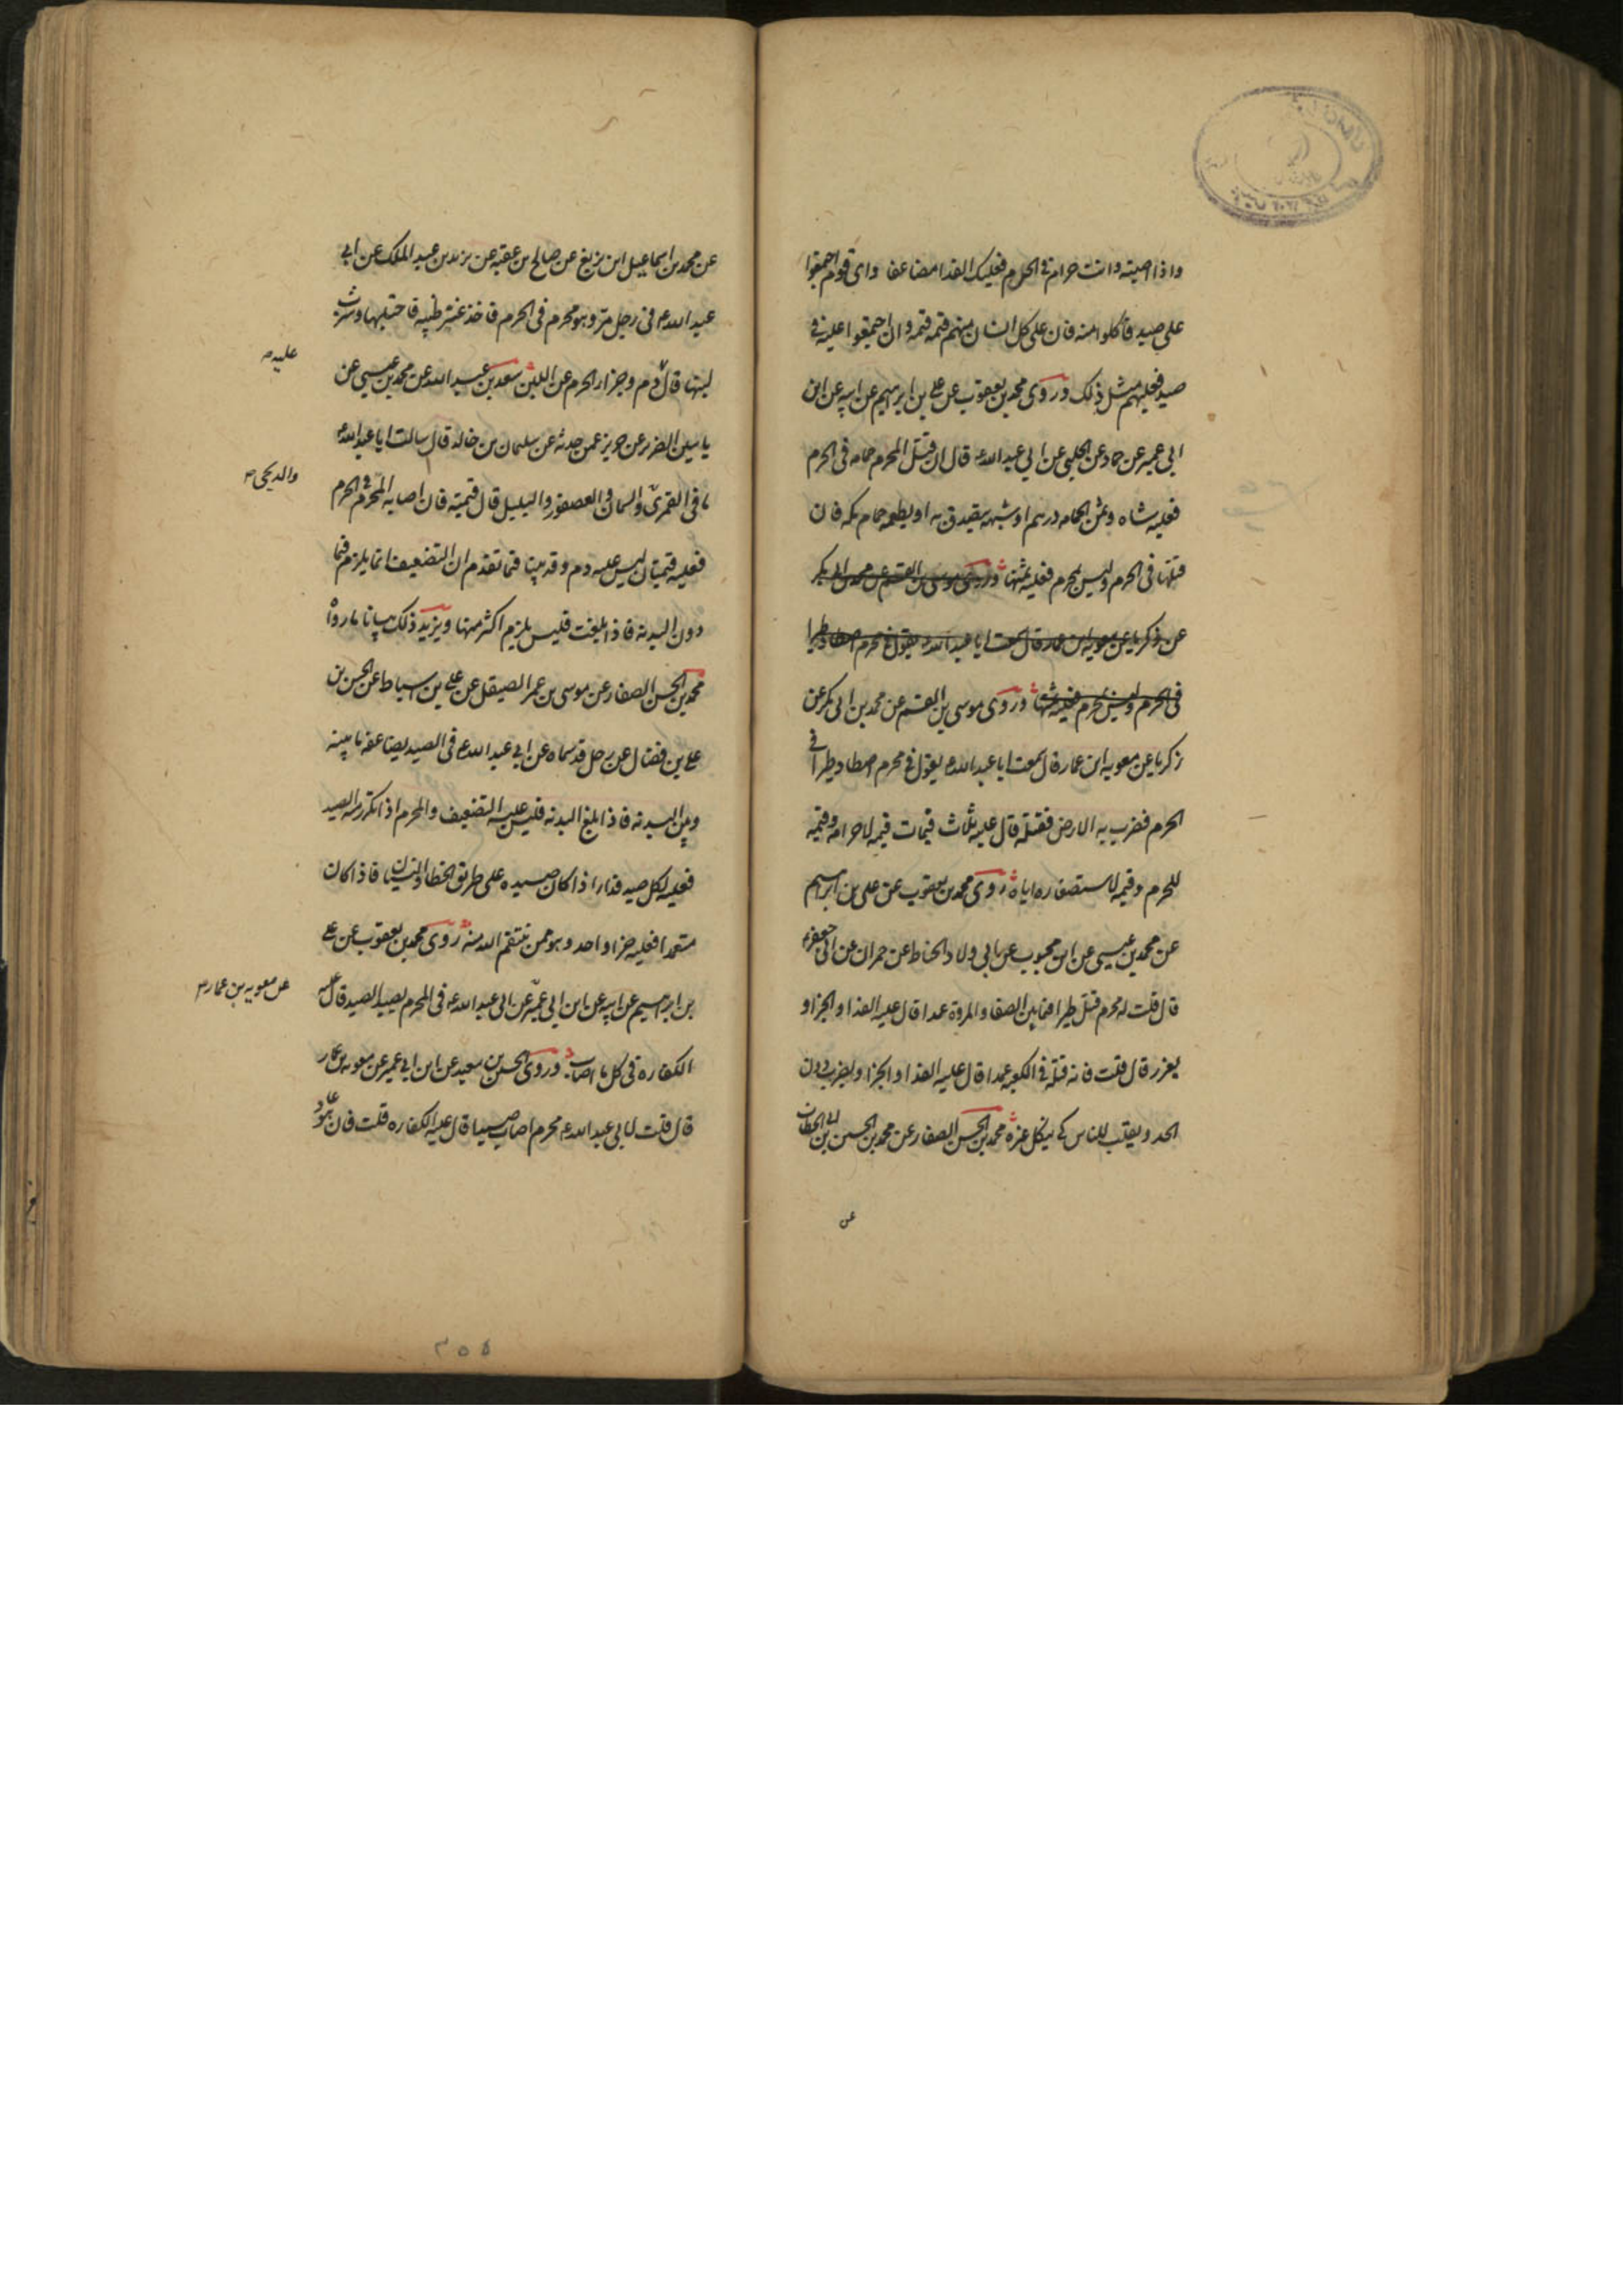 واذا اصبته وانت حرام فى الحرم فعليك الفدا مضاعفا واى قوم اجتمعوا
على صيد فاكلوا منه فان على كل انسان منهم قيمه قيمه وان اجتمعوا عليه فى
صيد فعليهم مثل ذلك وروى محمد بن يعقوب عن على بن ابرهيم عن ابيه عن ابن
ابى عمير عن حماد عن الحلبى عن ابى عبد الله ع قال ان قتل المحرم حمامه فى الحرم
فعليه شاه وثمن الحمامه درهم او شبهه يتصدق به او يطعمه حمام مكه فان
قتلها فى الحرم وليس بمحرم فعليه ثمنها وروى موسى بن القسم عن محمد بن ابى بكر
عن زكريا عن معويه ابن عمار قال سمعت ابا عبد الله ع يقول فى محرم اصطاد طيرا
فى الحرم وليس بمحرم فعليه ثمنها وروى موسى بن القسم عن محمد بن ابى بكر عن
زكريا عن معويه ابن عمار قال سمعت ابا عبد الله ع يقول فى محرم اصطاد طيرا فى
الحرم فضرب به الارض فقتله قال عليه ثلاث قيمات قيمه لاحرامه وقيمه
للحرم وقيمه لاستصغاره اياه روى محمد بن يعقوب عن على بن ابرهيم
عن محمد بن عيسى عن ابن محبوب عن ابى ولاد الحناط عن حمران عن ابى جعفر ع
قال قلت له محرم قتل طيرا فيما بين الصفا والمروة عمدا قال عليه الفدا والجزا و
يعزر قال قلت فانه قتله فى الكعبه عمدا قال عليه الفدا والجزا ويضرب دون
الحد ويقلب للناس كى ينكل غيره محمد بن الحسن الصفار عن محمد بن الحسين بن ابى الخطاب
عن
عن محمد بن اسماعيل ابن بزيع عن صالح بن عقبه عن يزيد بن عبد الملك عن ابى
عبد الله ع فى رجل مر وهو محرم فى الحرم فاخذ عنز ظبيه فاحتلبها وشرب
لبنها قال دم وجزا الحرم عن اللبن سعد بن عبد الله عن محمد بن عيسى عن
عليه
ياسين الضرير عن حريز عمن حدثه عن سليمان بن خالد قال سالت ابا عبد الله ع
ما فى القمرى والسمانى والعصفور والبلبل قال قيمته فان اصابه المحرم فى الحرم
والدبجى
فعليه قيمتان ليس عليه دم وقد بينا فيما تقدم ان التضعيف انما يلزم فيما
دون البدنه فاذا بلغت فليس يلزم اكثر منها ويزيد ذلك بيانا ما رواه
محمد بن الحسن الصفار عن موسى بن عمر الصيقل عن على بن اسباط عن الحسن بن
على بن فضال عن رجل قد سماه عن ابى عبد الله ع فى الصيد يضاعفه ما بينه
وبين البدنه فاذا بلغ البدنه فليس عليه التضعيف والمحرم اذا تكرر منه الصيد
فعليه لكل صيد فدا اذا كان صيده على طريق الخطا والنسيان فاذا كان
متعمدا فعليه جزا واحد وهو ممن ينتقم الله منه روى محمد بن يعقوب عن على
بن ابرهيم عن ابيه عن ابن ابى عمير عن ابى عبد الله ع فى المحرم يصيد الصيد قال عليه
عن معويه بن عمار
الكفاره فى كل ما اصاب وروى الحسين بن سعيد عن ابن ابى عمير عن معويه بن عمار
قال قلت لابى عبد الله ع محرم اصاب صيدا قال عليه الكفاره قلت فان هو عاد